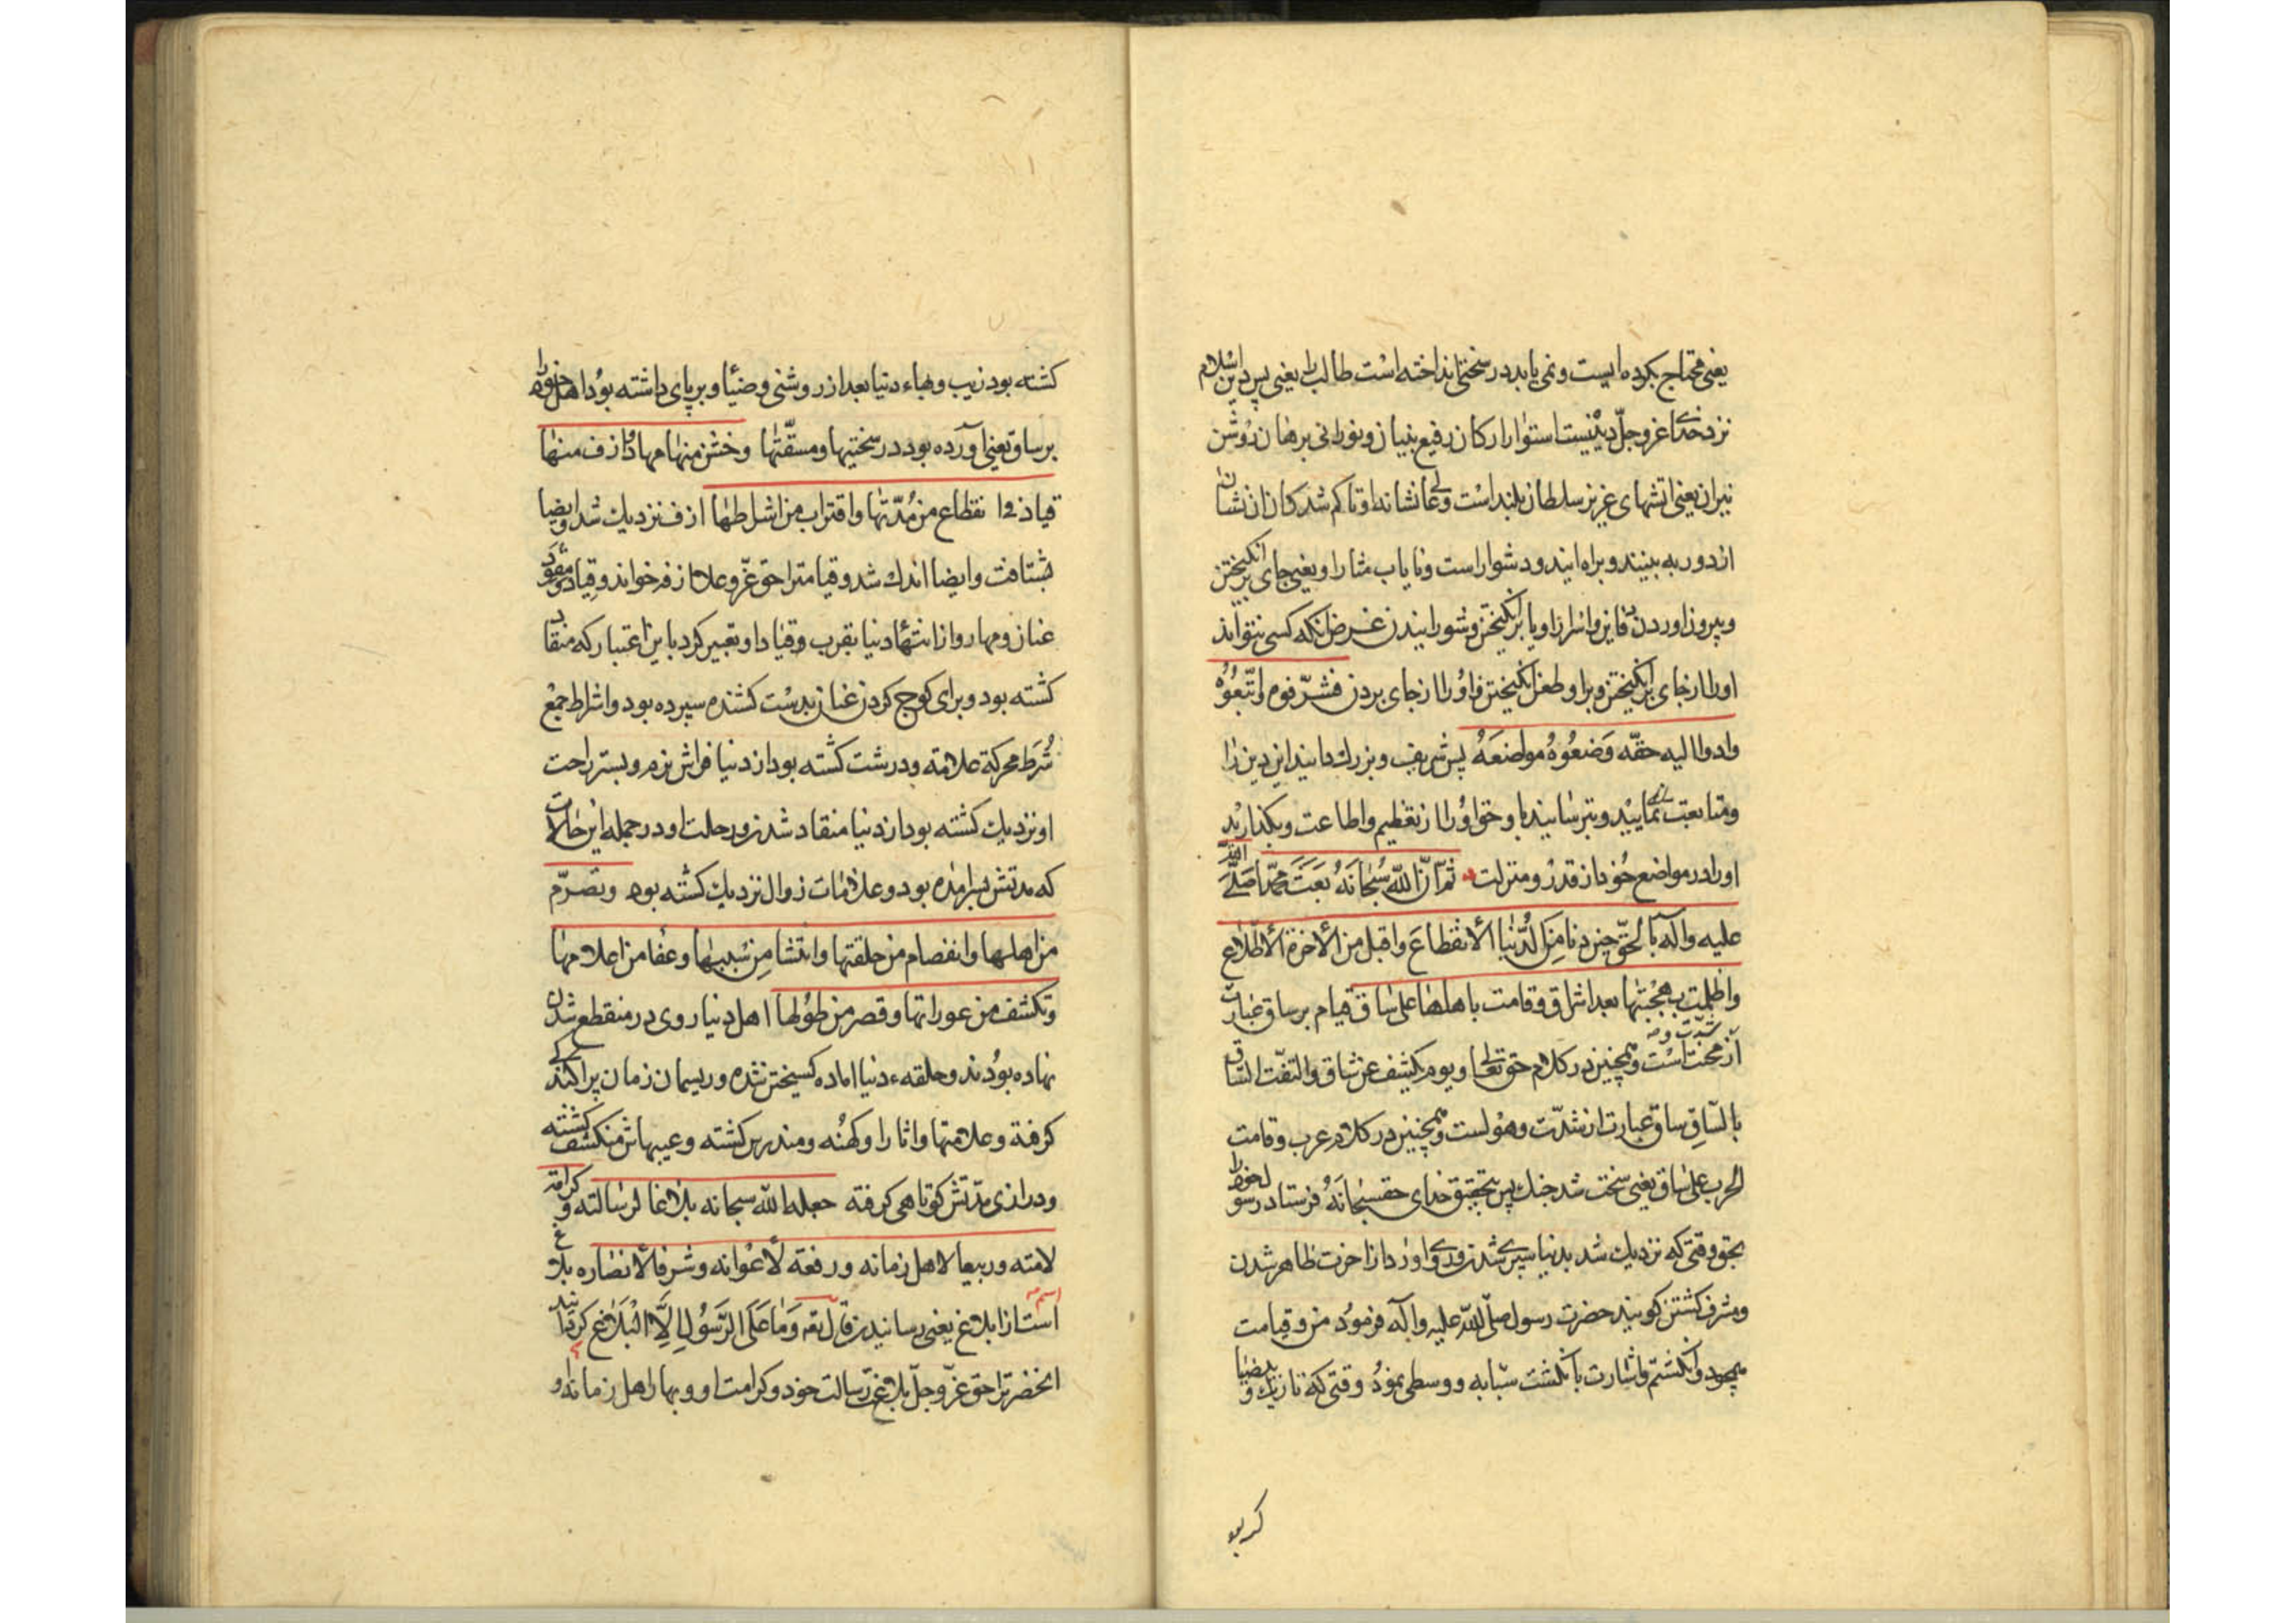 یعنی محتاج بکرده ایست و نمی یابد در سختی انداخته است طالب را یعنی پس دین اسلام
نزد خدا عز و جل دینیست استوار ارکان رفیع بنیان و نورانی برهان روشن
نیران یعنی اتشهای عزیز سلطان بلند است و عا نشانها او تا کم شد کان ان نشان
از دور به بینند و براه ایند و دشوار است و نایاب مثار او یعنی جای برانکیختن
و بیرون اوردن دفاین و اسرار او یا برانکیختن و شورانیدن غرض انکه کسی نتواند
اورا از جای برانکیختن و بر او طعن انکیختن و اورا از جای بردن فشرّفوه و اتّبعُوُه
و ادوا الیه حقّه وَضعُوُهُ مواضعَهُ پس شریف و بزرك دانید این دین را
و متابعتش نمایید و برسانید باو حق اوُرا از تعظیم و اطاعت و بکذارید
اورا در مواضع خُود از قدر و منزلت ثمّ انّ اللّه سُبحانَهُ بَعَثَ محمّداً صَلّی اللّه
علیه و آله بالحقّ حین دنا مِنَ الدُّنیا الأنقطاعَ و اقبل من الأخرة الأطّلاع
و اظلمت بهجُتها بعد اشراق و قامت باهلها علی ساق قیام بر ساق عبارت
از شدّت و محنت است و همچنین در کلام حق تعالی و یوم یکشف عن ساق و التفّت السّاق
بالسّاقِ ساق عبارت از شدّت و هولست و همچنین در کلام عرب و قامت
الحرب علی ساق یعنی سخت شد جنك پس بتحقیق خدای حق سبحانَهُ فرستاد رسول خود را
بحق وقتی که نزدیك شد بدنیا سپری شدن و روی اورد از اخرت ظاهر شدن
و مشرف کشتن کویند حضرت رسول صلّی اللّه علیه و آله فرموُد من و قیامت
همچو دو انکشتم و اشارت بانکشت سبّابه و وسطی نموُد وقتی که تاریك و بیضیا
کشته بود زیب و بهاء دنیا بعد از روشنی و ضیا و بر پای داشته بوُد اهل خود را
بر ساق یعنی آورده بود در سختیها و مشقّتها و خشن منها مهاد و ازف منها
قیاد فی انقطاع من مُدّتها و اقتراب من اشراطها ازف نزدیك شد و ایضا
شتافت و ایضا اندك شد و قیامت را حق عزّ و علا ازفه خواند و قِیاد مقود
عنان و مهار و از انتهاء دنیا بقرب و قیاد او تعبیر کرد باین اعتبار که منقاد
کشته بود و برای کوچ کردن عنان بدست کشنده سپرده بود و اشراط جمع
شُرَط محرکة علامة و درشت کشته بود از دنیا فراش نرم و بستر راحت
او نزدیك کشته بود از دنیا منقاد شدن و رحلت او در جمله این حالات
که مدتش بسر امده بود و علامات زوال نزدیك کشته بود و تصرّم
من اهلها و انفصام من حلقتها و انتشار مِن سببها و عفا من اعلامها
و تکشف من عوراتها و قصر من طوُلها اهل دنیا روی در منقطع شدن
نهاده بوُدند و حلقهء دنیا اماده کسیختن شده و ریسمان زمان پراکندکی
کرفته و علامتها و اثار او کهنُه و مندرس کشته و عیبهاش منکشف کشته
و درازی مدّتش کوتاهی کرفته جعله اللّه سبحانه بلاغا لرسالته و کرامة
لامته و ربیعا لاهل زمانه و رفعة لأعوانه و شرفا لأنصاره بلاغ
اسم است از ابلاغ یعنی رسانیدن قال تع وَ ما عَلَی الرَّسُولِ اِلاَّ الْبَلاغ کردانید
انحضرت را حق عزّ و جلّ بلاغ رسالت خود و کرامت او و بهار اهل زمانه و